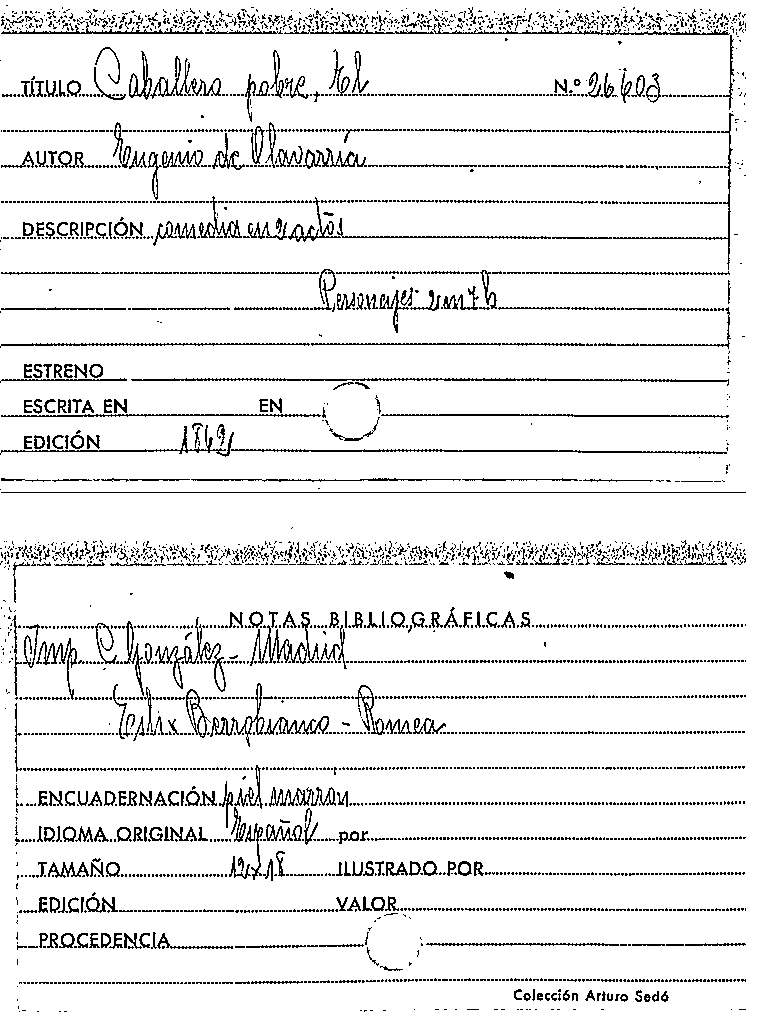 TÍTULO Caballero pobre, El N.º 26603
AUTOR Eugenio de Olavarría
DESCRIPCIÓN comedia en 2 actos
Personajes 2m7h
ESTRENO
ESCRITA EN EN
EDICIÓN
NOTAS BIBLIOGRÁFICAS
Imp. C. González - Madrid
Berrobianco - Romea
ENCUADERNACIÓN piel marrón
IDIOMA ORIGINAL Español por
TAMAÑO 12x18 ILUSTRADO POR
EDICIÓN VALOR
PROCEDENCIA
Colección Arturo Sedó